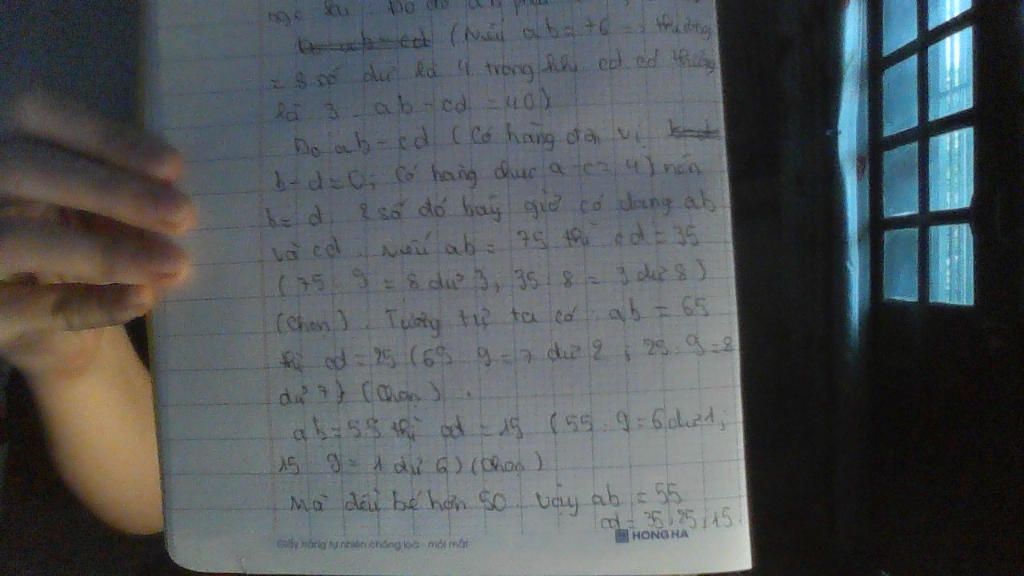 (Nếu ab = 76 => thương
= 8 số dư là 4 trong khi cd cd thương
là 3. ab - cd = 40)
Do ab - cd (Có hàng đơn vị
b - d = 0; Có hàng chục a - c = 4) nên
b = d. 2 số đó bây giờ có dạng ab
và cd. Nếu ab = 75 thì cd = 35
(75 : 9 = 8 dư 3; 35 : 8 = 3 dư 8)
(Chọn). Tương tự ta có: ab = 65
thì cd = 25 (65 : 9 = 7 dư 2; 25 : 9 = 2
dư 7) (Chọn).
ab = 55 thì cd = 15 (55 : 9 = 6 dư 1;
15 : 9 = 1 dư 6) (Chọn)
Mà đều bé hơn 50. Vậy ab = 55
cd = 35; 25; 15.
Giấy trắng tự nhiên chống loá - mỏi mắt
HONG HA